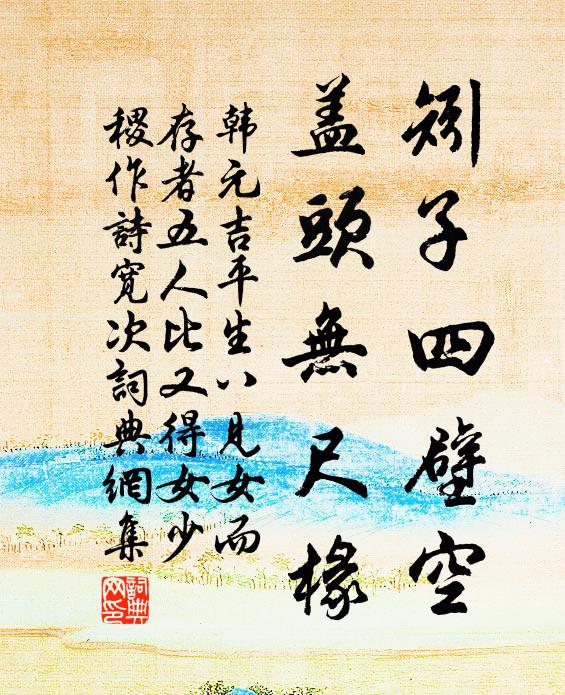 矧子四壁空
盖頭無尺椽
韓元吉平生八見女而
存者五人比又得女少
稷作詩寛次詞典網集